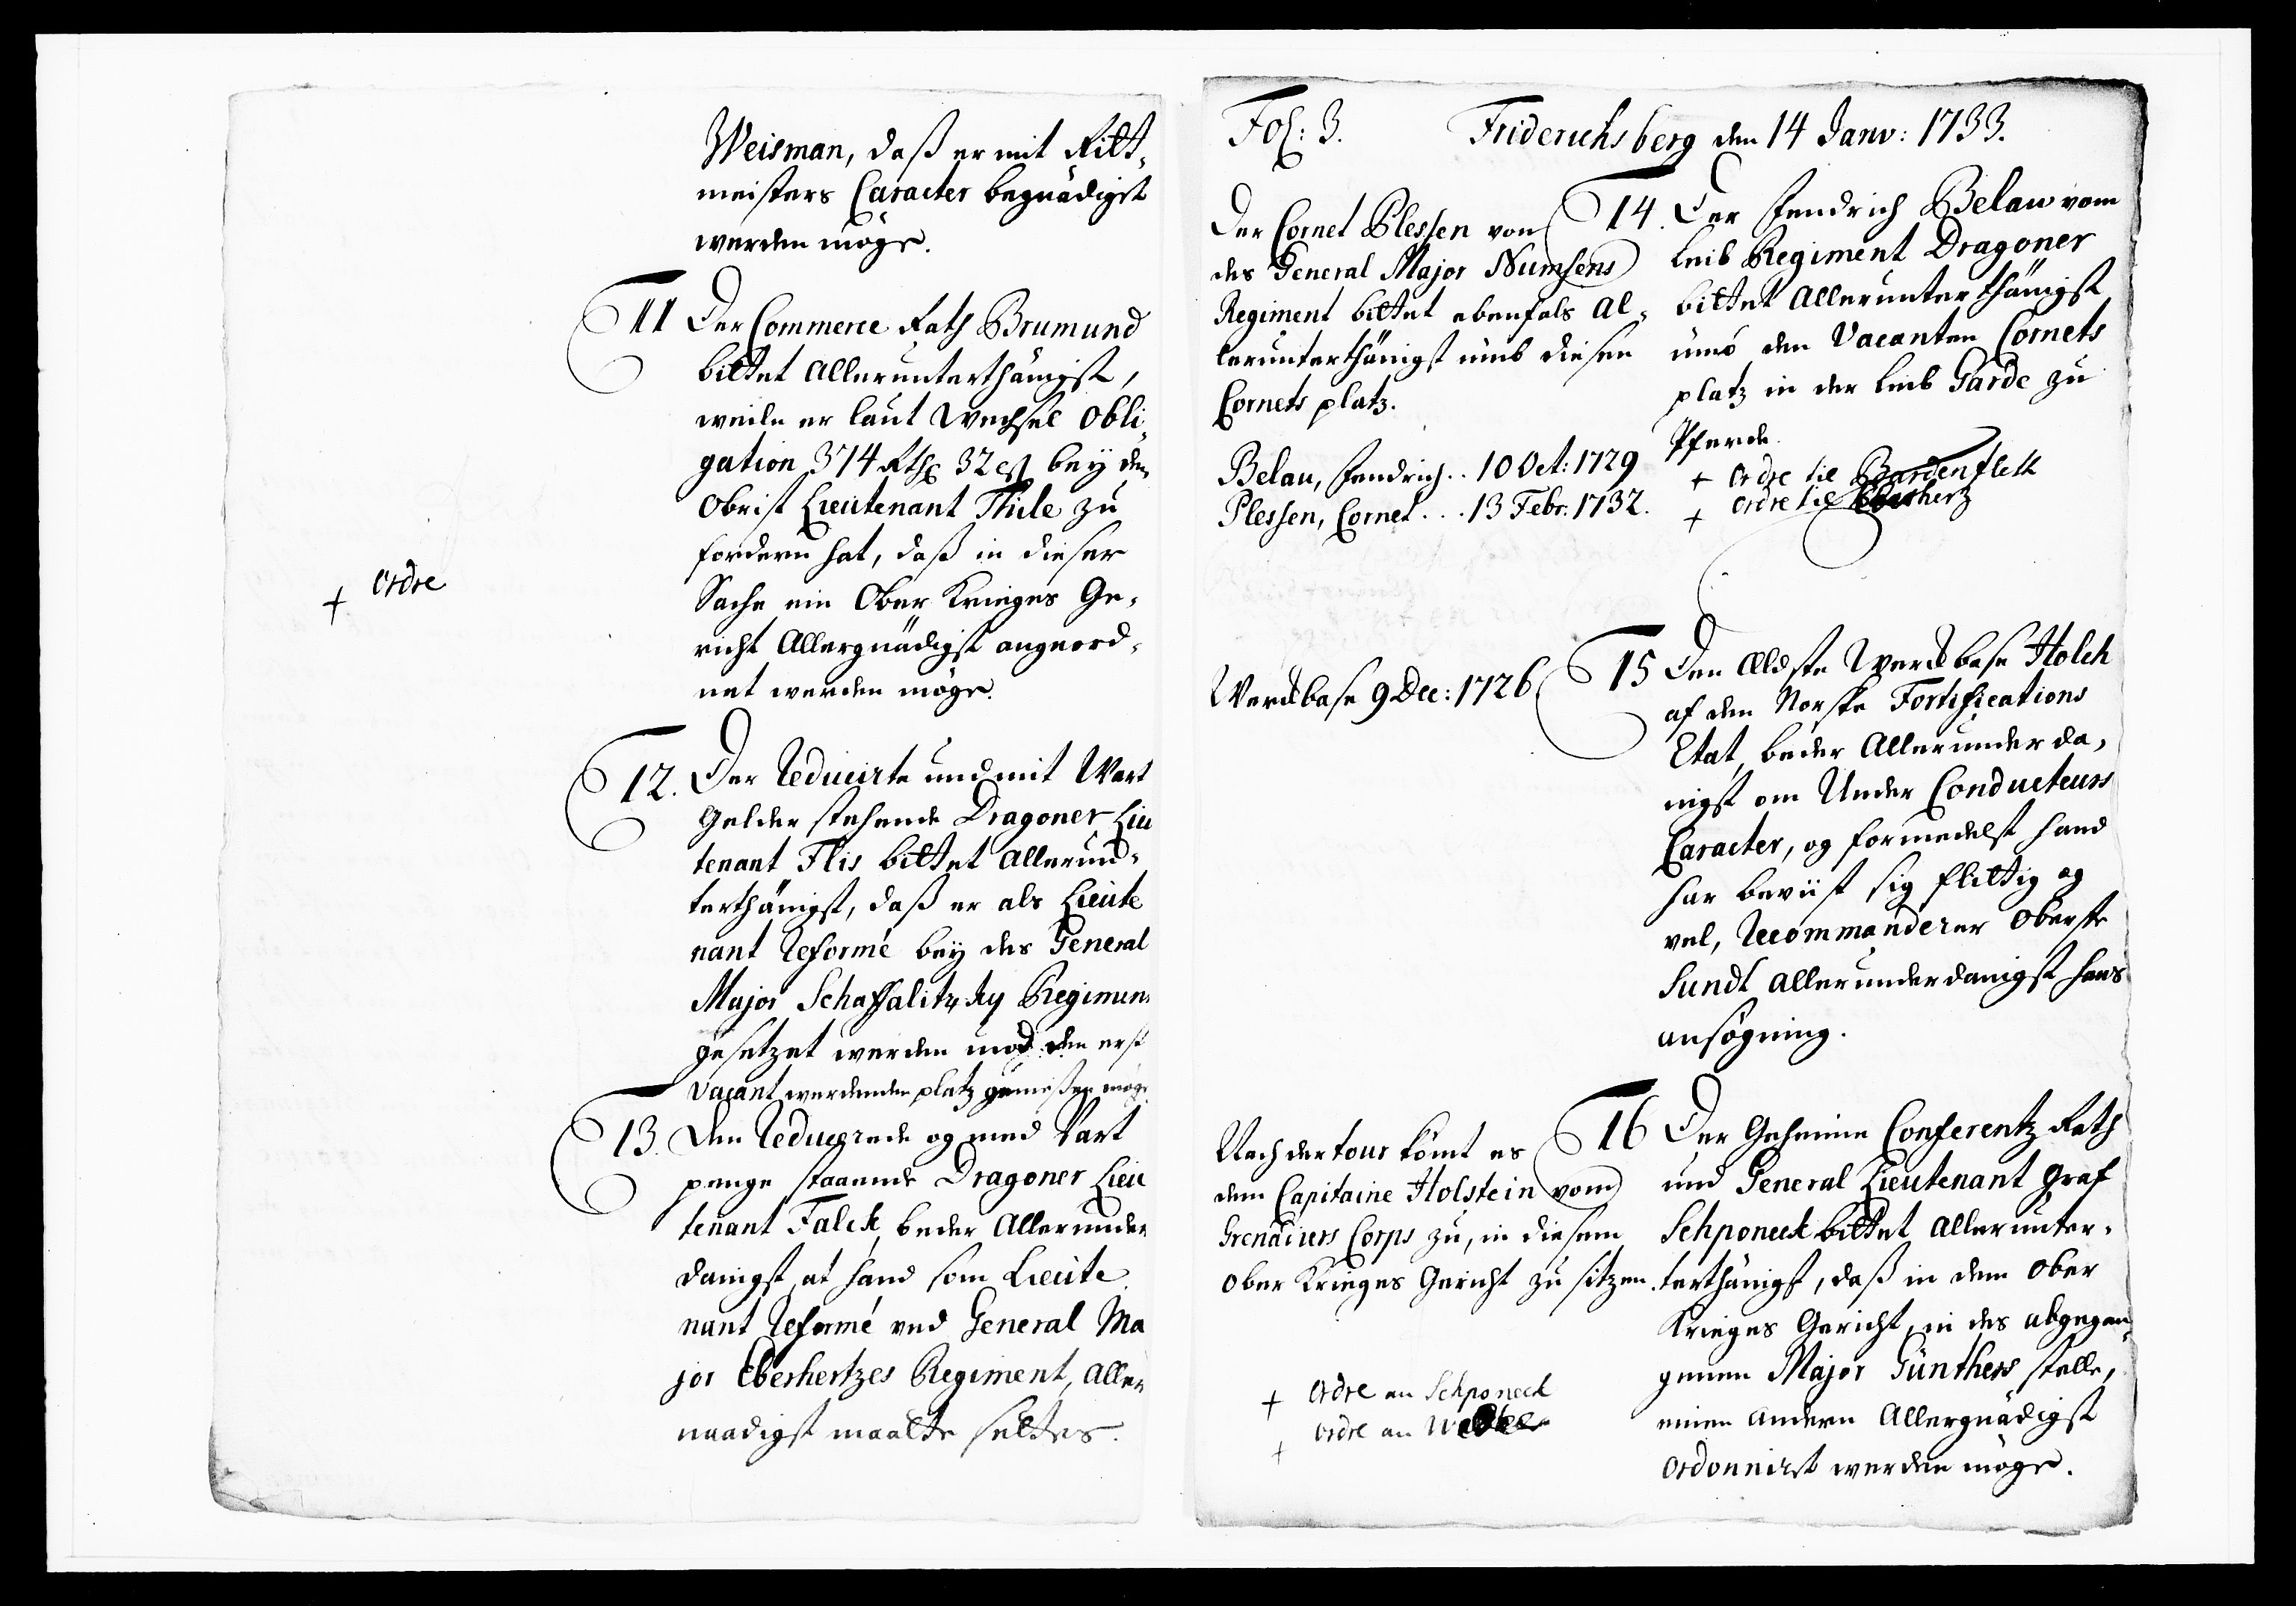 Weisman, daß er mit Ritt-
meisters Caracter begnädigt
werden möge.
11 Der Commerce Rath Brumund
bittet Allerunterthänigst,
weile er laut Wechsel Obli-
gation 374 Rthl 32 ß bey den
Obrist Lieutenant Thile zu
fordern hat, daß in dieser
Sache ein Ober Krieges Ge-
richt Allergnädigst angeord-
net werden möge.
+ Ordre
12. Der Reducirte und mit Wart
Gelder stehende Dragoner Lieu
tenant Flis bittet Allerun-
terthänigst, daß er als Lieute
nant Reformé bey des General
Major Schaffalitzky Regimen
gesetzet werden und den erst
vacant werdenden platz genießen möge
13. Den Reducerede og med Vart
penge staaende Dragoner Lieu
tenant Falck, beder Allerunder
danigst, at hand som Lieute
nant Reformé ved General Ma
jor Eberhertzes Regiment, Aller
naadigst maatte settes.
Fol: 3. Friderichsberg den 14 Janv: 1733.
Der Cornet Plessen von
des General Major Numsens
Regiment bittet ebenfals Al-
lerunterthänigst umb diesen
Cornets platz.
Belau, Fendrich .. 10 Oct: 1729
Plessen, Cornet ... 13 Febr. 1732.
14. Der Fendrich Belau vom
Leib Regiment Dragoner
bittet Allerunterthänigst
umb den Vacanten Cornets
platz in der Leib Garde zu
Pferde.
+ Ordre til Bardenfleth
+ Ordre til Ebertz
Werckbase 9 Dec: 1726
15 Den Eldste Werckbase Holch
af den Norske Fortifications
Etat, beder Allerunderda-
nigst om Under Conducteurs
Caracter, og formedelst hand
har beviist sig flittig og
vel, Recommanderer Oberste
Sundt allerunderdanigst hans
ansøgning.
Nach der tour kömt es
dem Capitaine Holstein vom
Grenadiers Corps zu, in diesem
Ober Krieges Gericht zu sitzen.
+ Ordre an Schponeck
+ Ordre an
16 Der Geheime Conferentz Rath
und General Lieutenant Graf
Schponeck bittet Allerunter-
terthänigst, daß in dem Ober
Krieges Gericht, in des abgegan-
genen Major Günthers stelle,
einen andern Allergnädigst
Ordonnirt werden möge.